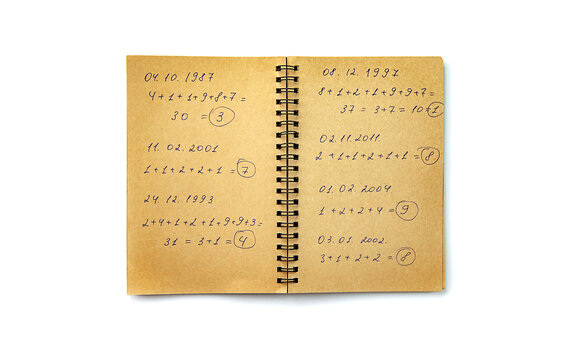 04.10.1987
4+1+1+9+8+7=
30 = 3
11.02.2001
1+1+2+2+1 = 7
24.12.1993
2+4+1+2+1+9+9+3=
31 = 3+1 = 4
08.12.1997
8+1+2+1+9+9+7=
37 = 3+7 = 10=1
02.11.2011.
2+1+1+2+1+1 = 8
01.02.2004.
1+2+2+4 = 9
03.01.2002.
3+1+2+2 = 8